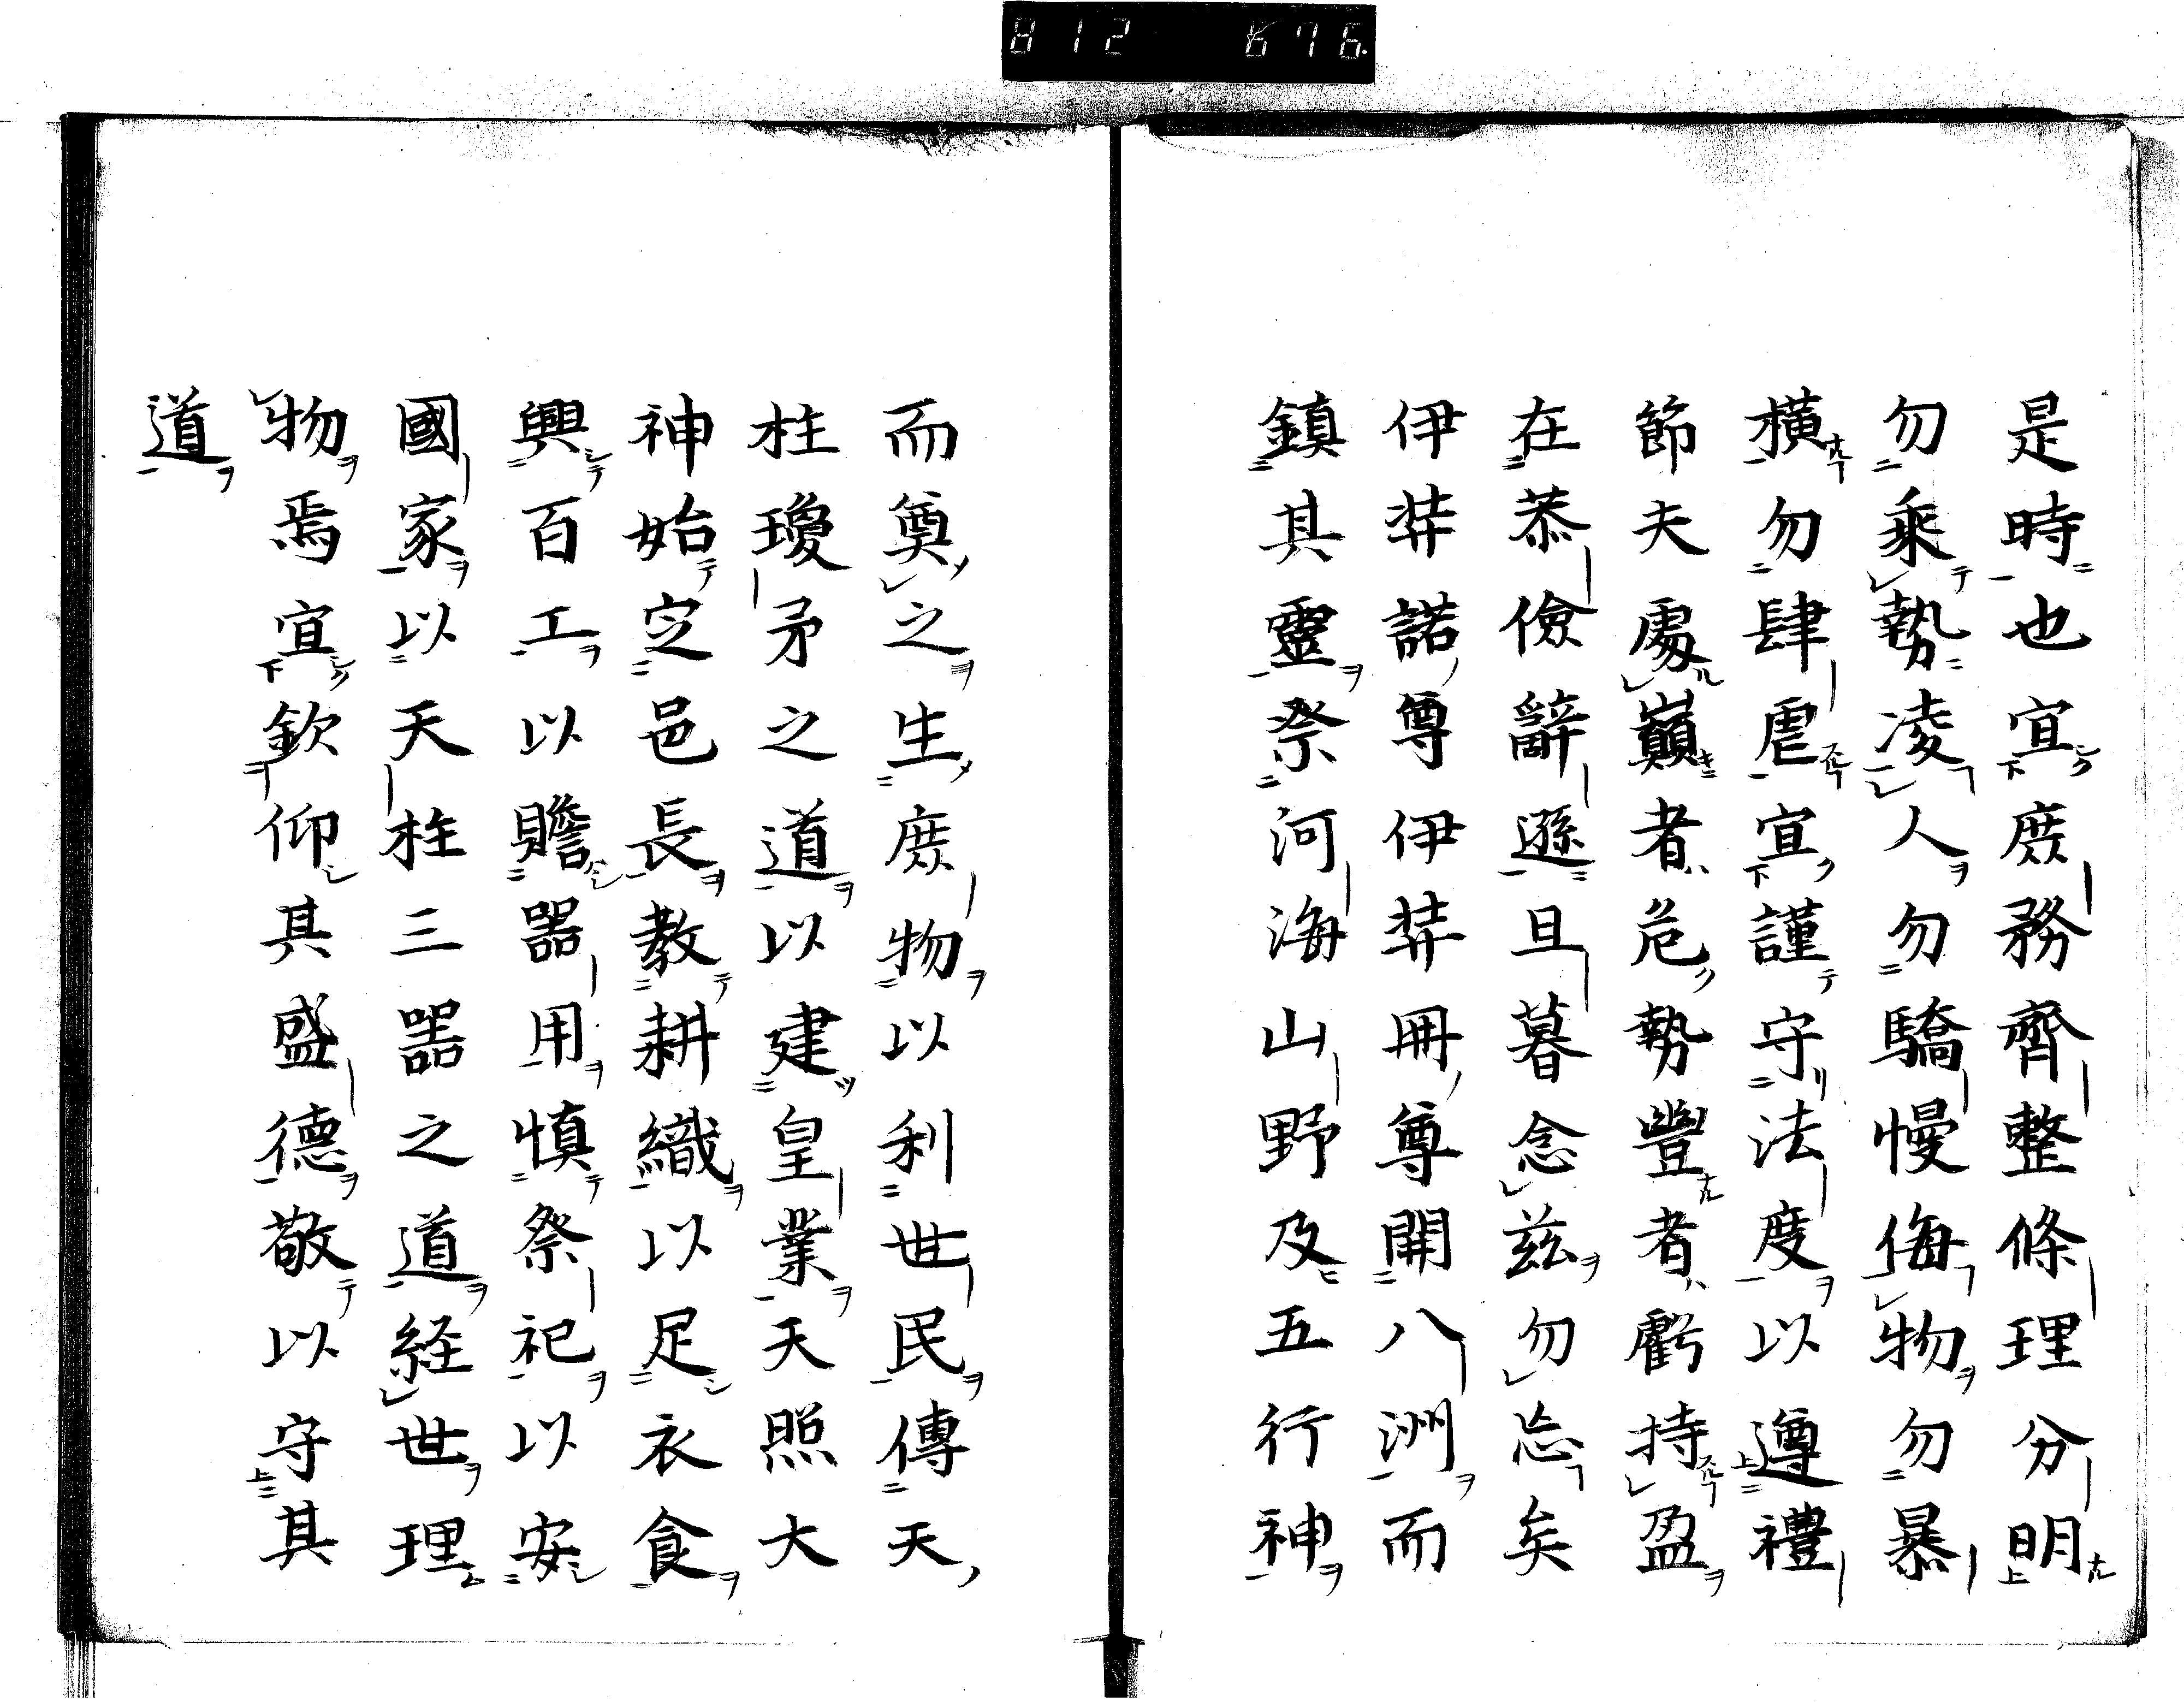 812 676
是時也宜庶務齊整條理分明
勿乘勢凌人勿驕慢侮物勿暴
横勿肆虐宜謹守法度以遵禮
節夫處巔者危勢豐者虧持盈
在恭儉辭遜旦暮念茲勿忘矣
伊弉諾尊伊弉冊尊開八洲而
鎮其靈祭河海山野及五行神
而奠之生庶物以利世民傳天
柱瓊矛之道以建皇業天照大
神始定邑長教耕織以足衣食
興百工以贍器用慎祭祀以安
國家以天柱三器之道経世理
物焉宜欽仰其盛德敬以守其
道